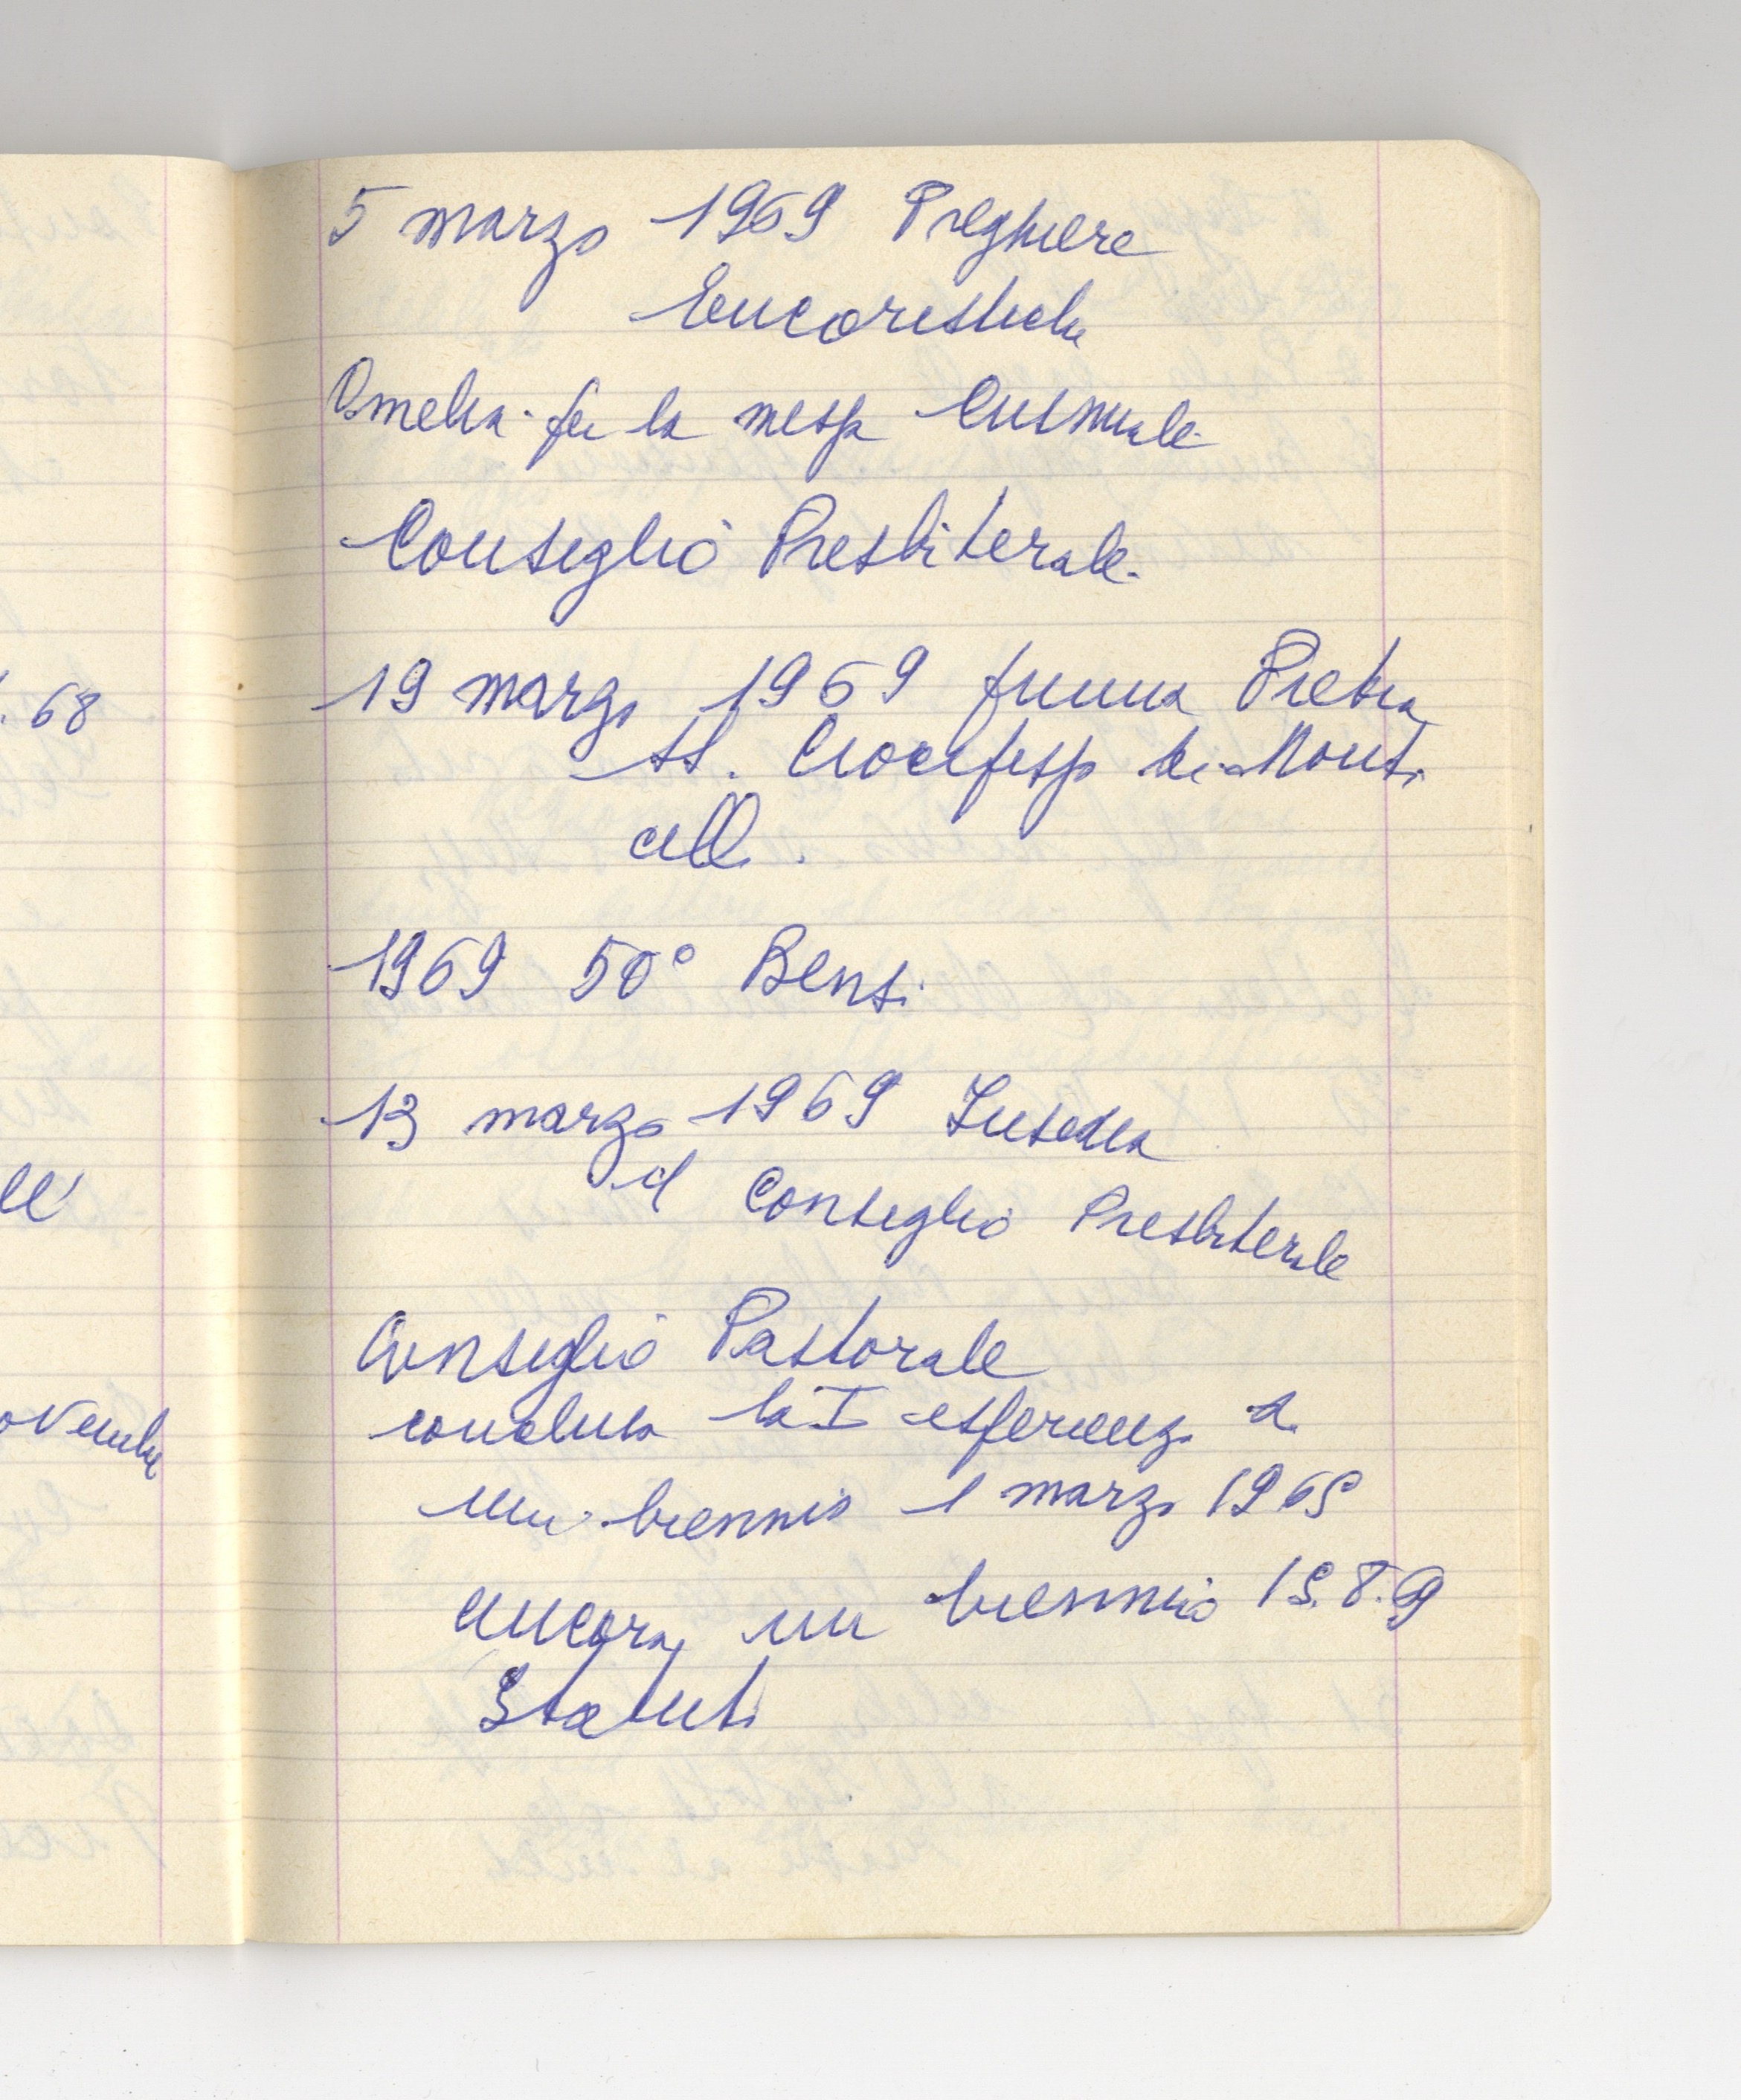 5 marzo 1969 Preghiere
Eucaristiche
Omelia per la messa Crismale
Consiglio Presbiterale
19 marzo 1969 prima Pietra
SS. Crocifisso di Monti
celli.
1969 50° Bensi
13 marzo 1969 Insedia
il Consiglio Presbiterale
Consiglio Pastorale
conclusa la I esperienza di
un biennio 1 marzo 1969
ancora un biennio 19.8.69
Statuti
. 68